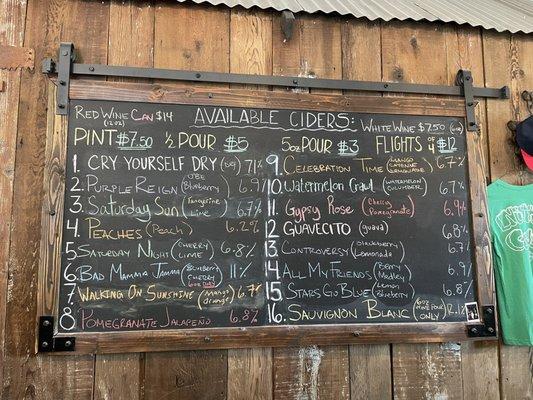 RED WINE CAN $14
(12 OZ)
AVAILABLE CIDERS:
WHITE WINE $7.50 (6OZ)
PINT $7.50 ½ POUR $5 5oz POUR $3 FLIGHTS OF 4 $12
1. CRY YOURSELF DRY 7.1%
2. PURPLE REIGN 6.9%
3. SATURDAY SUN (Tangerine Lime) 6.7%
4. PEACHES (Peach) 6.2%
5. SATURDAY NIGHT (CHERRY LIME) 6.8%
6. BAD MAMMA JAMMA 11%
7. WALKING ON SUNSHINE (Mango Orange) 6.7%
8. POMEGRANATE JALAPEÑO 6.8%
9. CELEBRATION TIME (MANGO CAYENNE LEMONADE) 6.7%
10. WATERMELON CRAWL (WATERMELON CUCUMBER) 6.7%
11. GYPSY ROSE (Cherry Pomegranate) 6.9%
12. GUAVECITO (guava) 6.8%
13. CONTROVERSY (Blackberry Lemonade) 6.7%
14. ALL MY FRIENDS (Berry Medley) 6.9%
15. STARS GO BLUE (Lemon Blueberry) 6.8%
16. SAUVIGNON BLANC (6OZ POUR ONLY) 12.1%